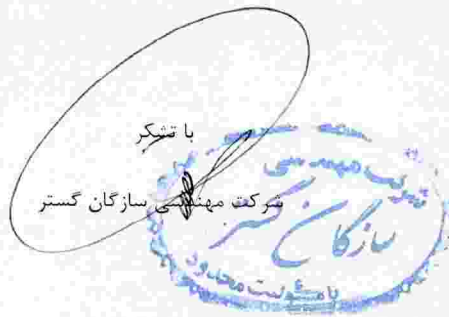 با تشکر
شرکت مهندسی سازگان گستر
شرکت مهندسی
سازگان گستر
با مسئولیت محدود